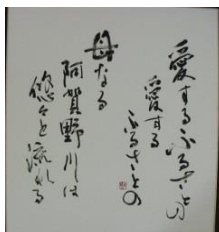 愛するふるさと
愛する
ふるさとの
母なる
阿賀野川は
悠々と流れる